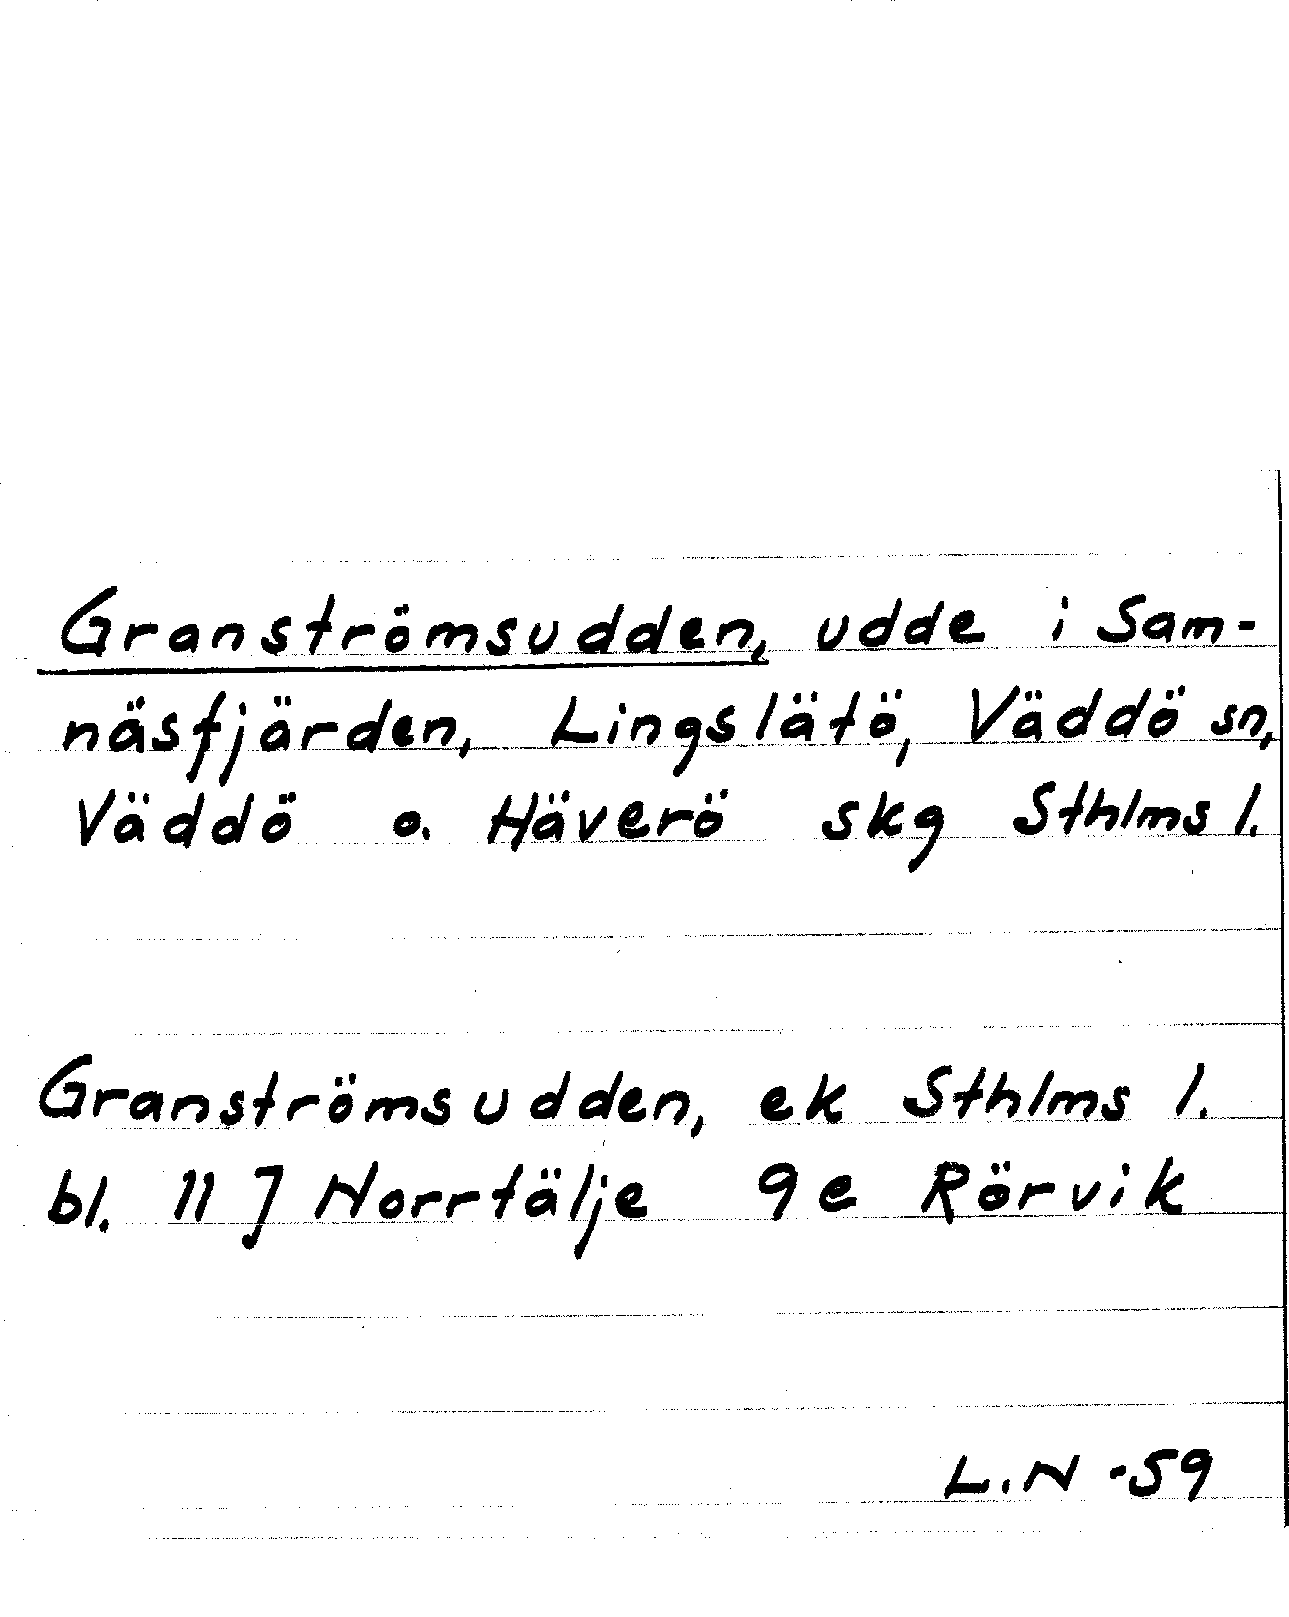 Granströmsudden, udde i Sam-
näsfjärden, Lingslätö, Väddö sn,
Väddö o. Häverö skg Sthlms l.
Granströmsudden, ek Sthlms l.
bl. 11 J Norrtälje 9 e Rörvik
L.N -59